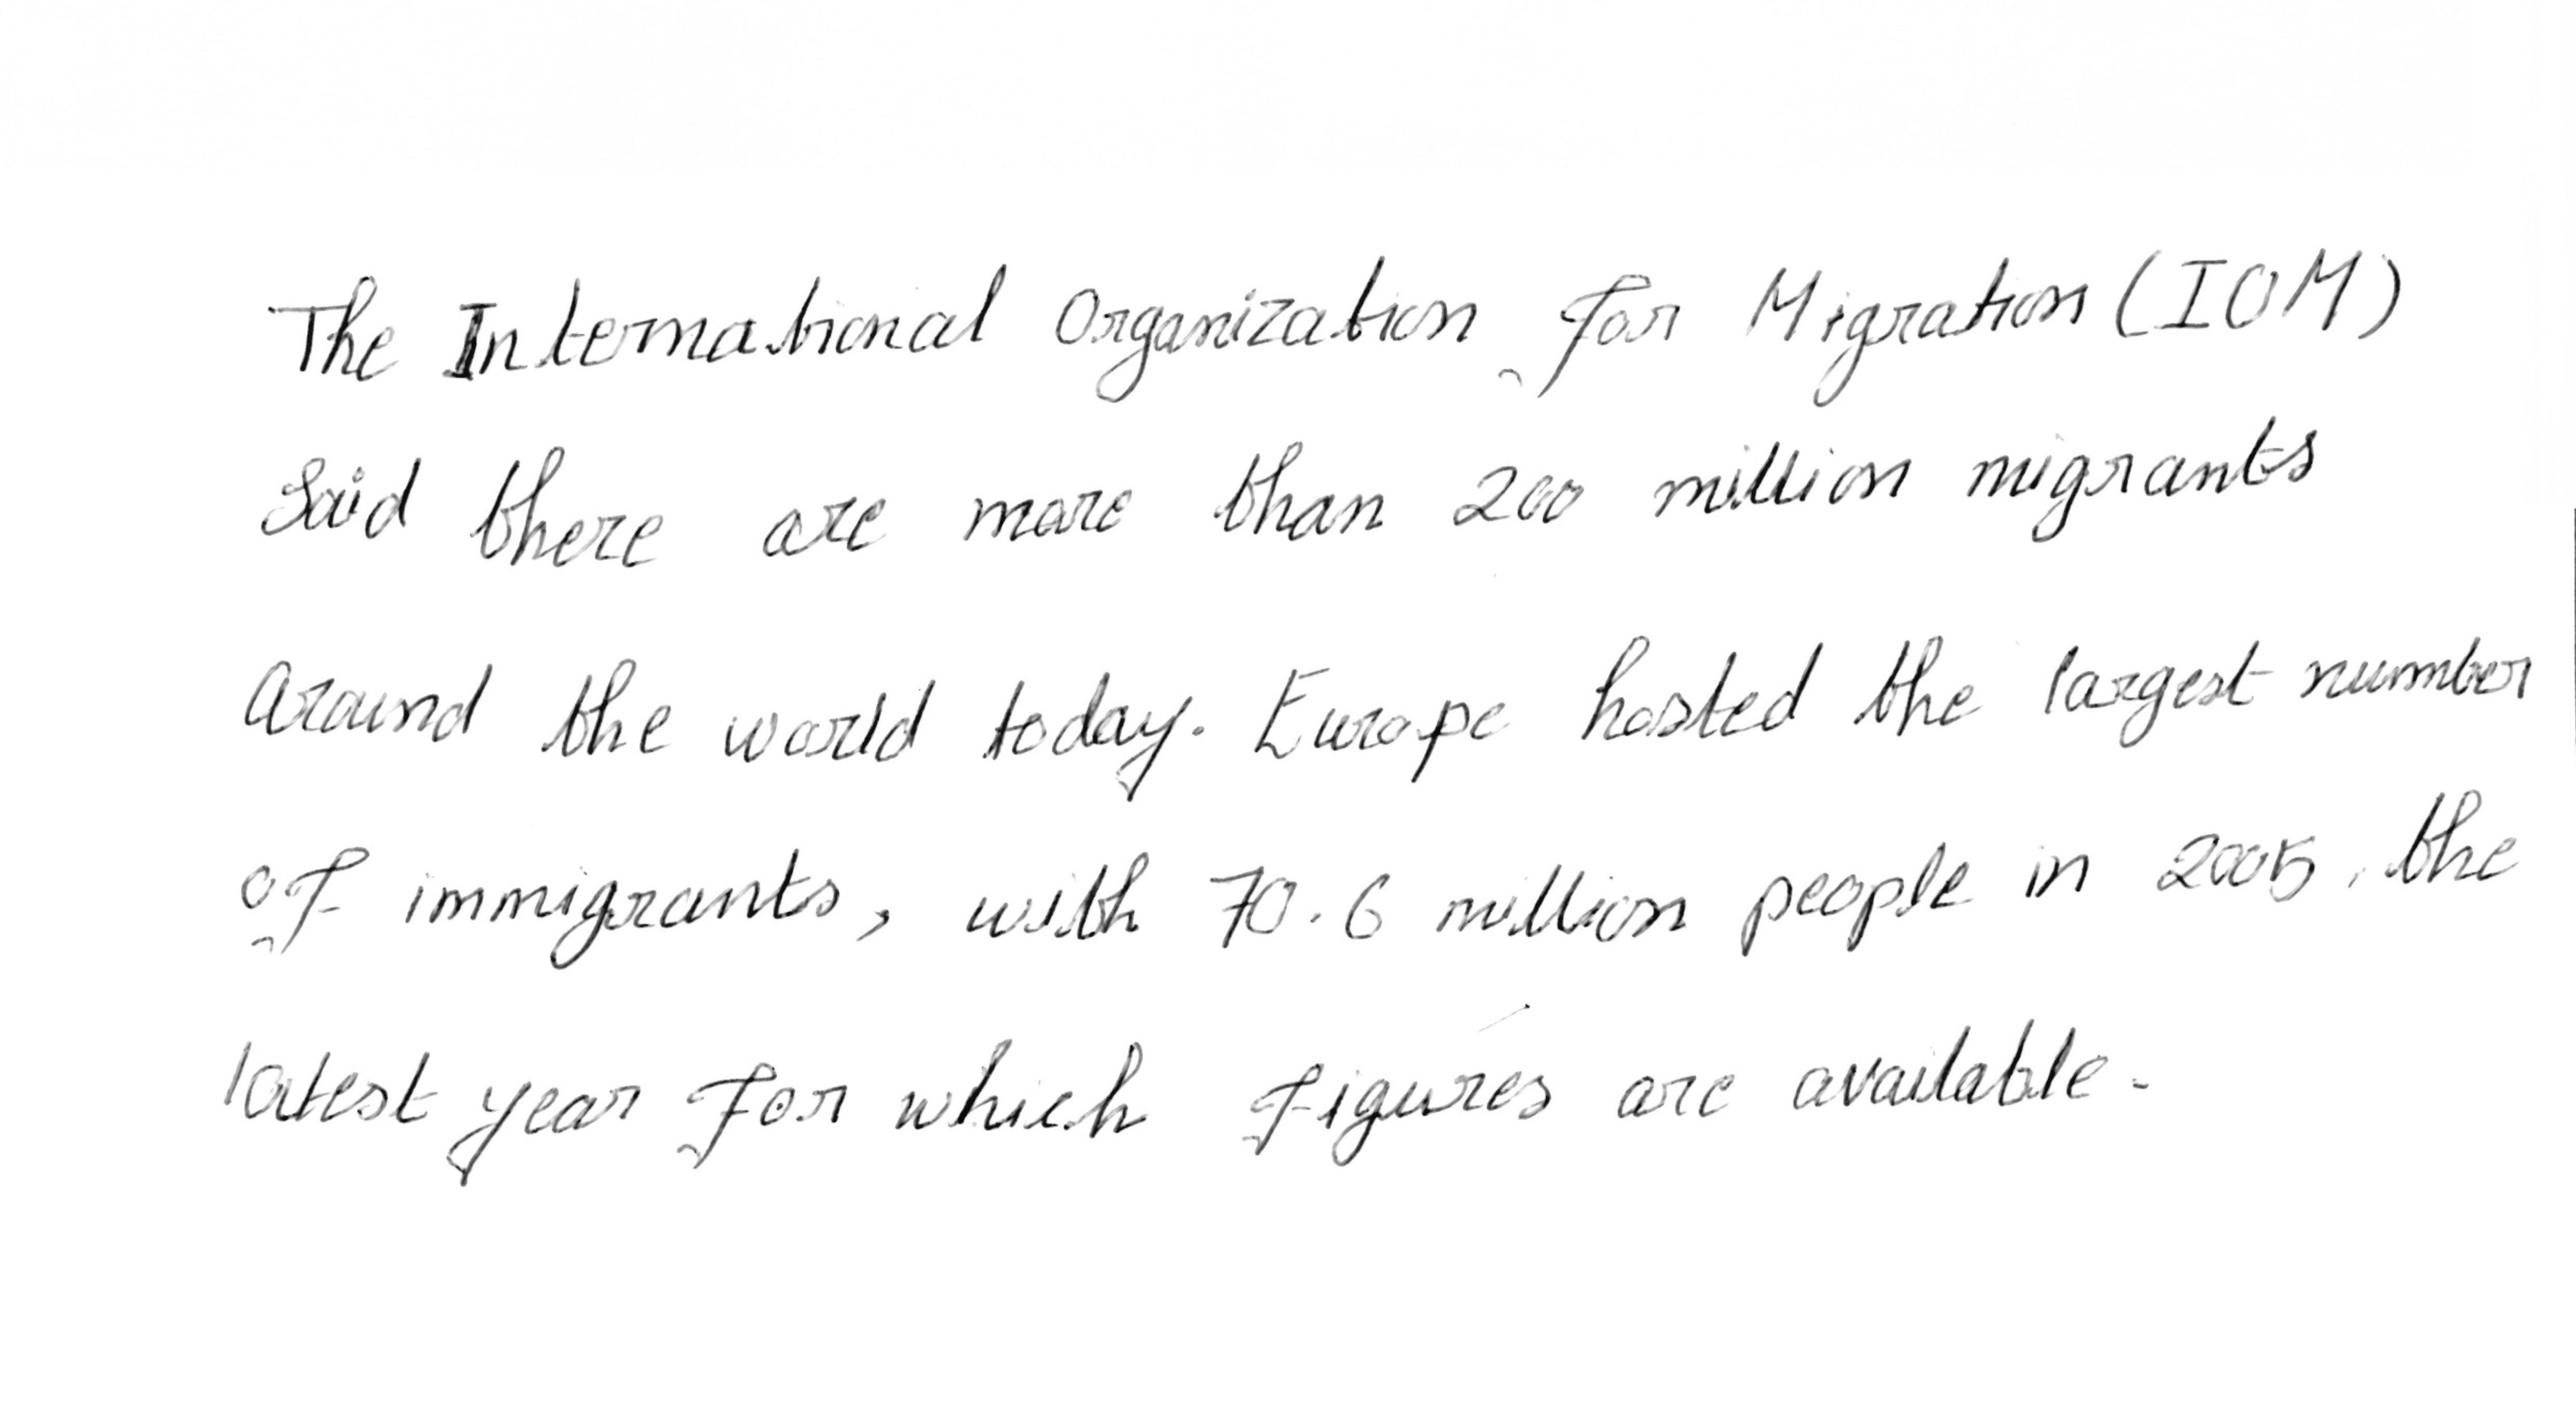 The International Organization for Migration (IOM)
Said there are more than 200 million migrants
around the world today. Europe hosted the largest number
of immigrants, with 70.6 million people in 2005, the
latest year for which figures are available.